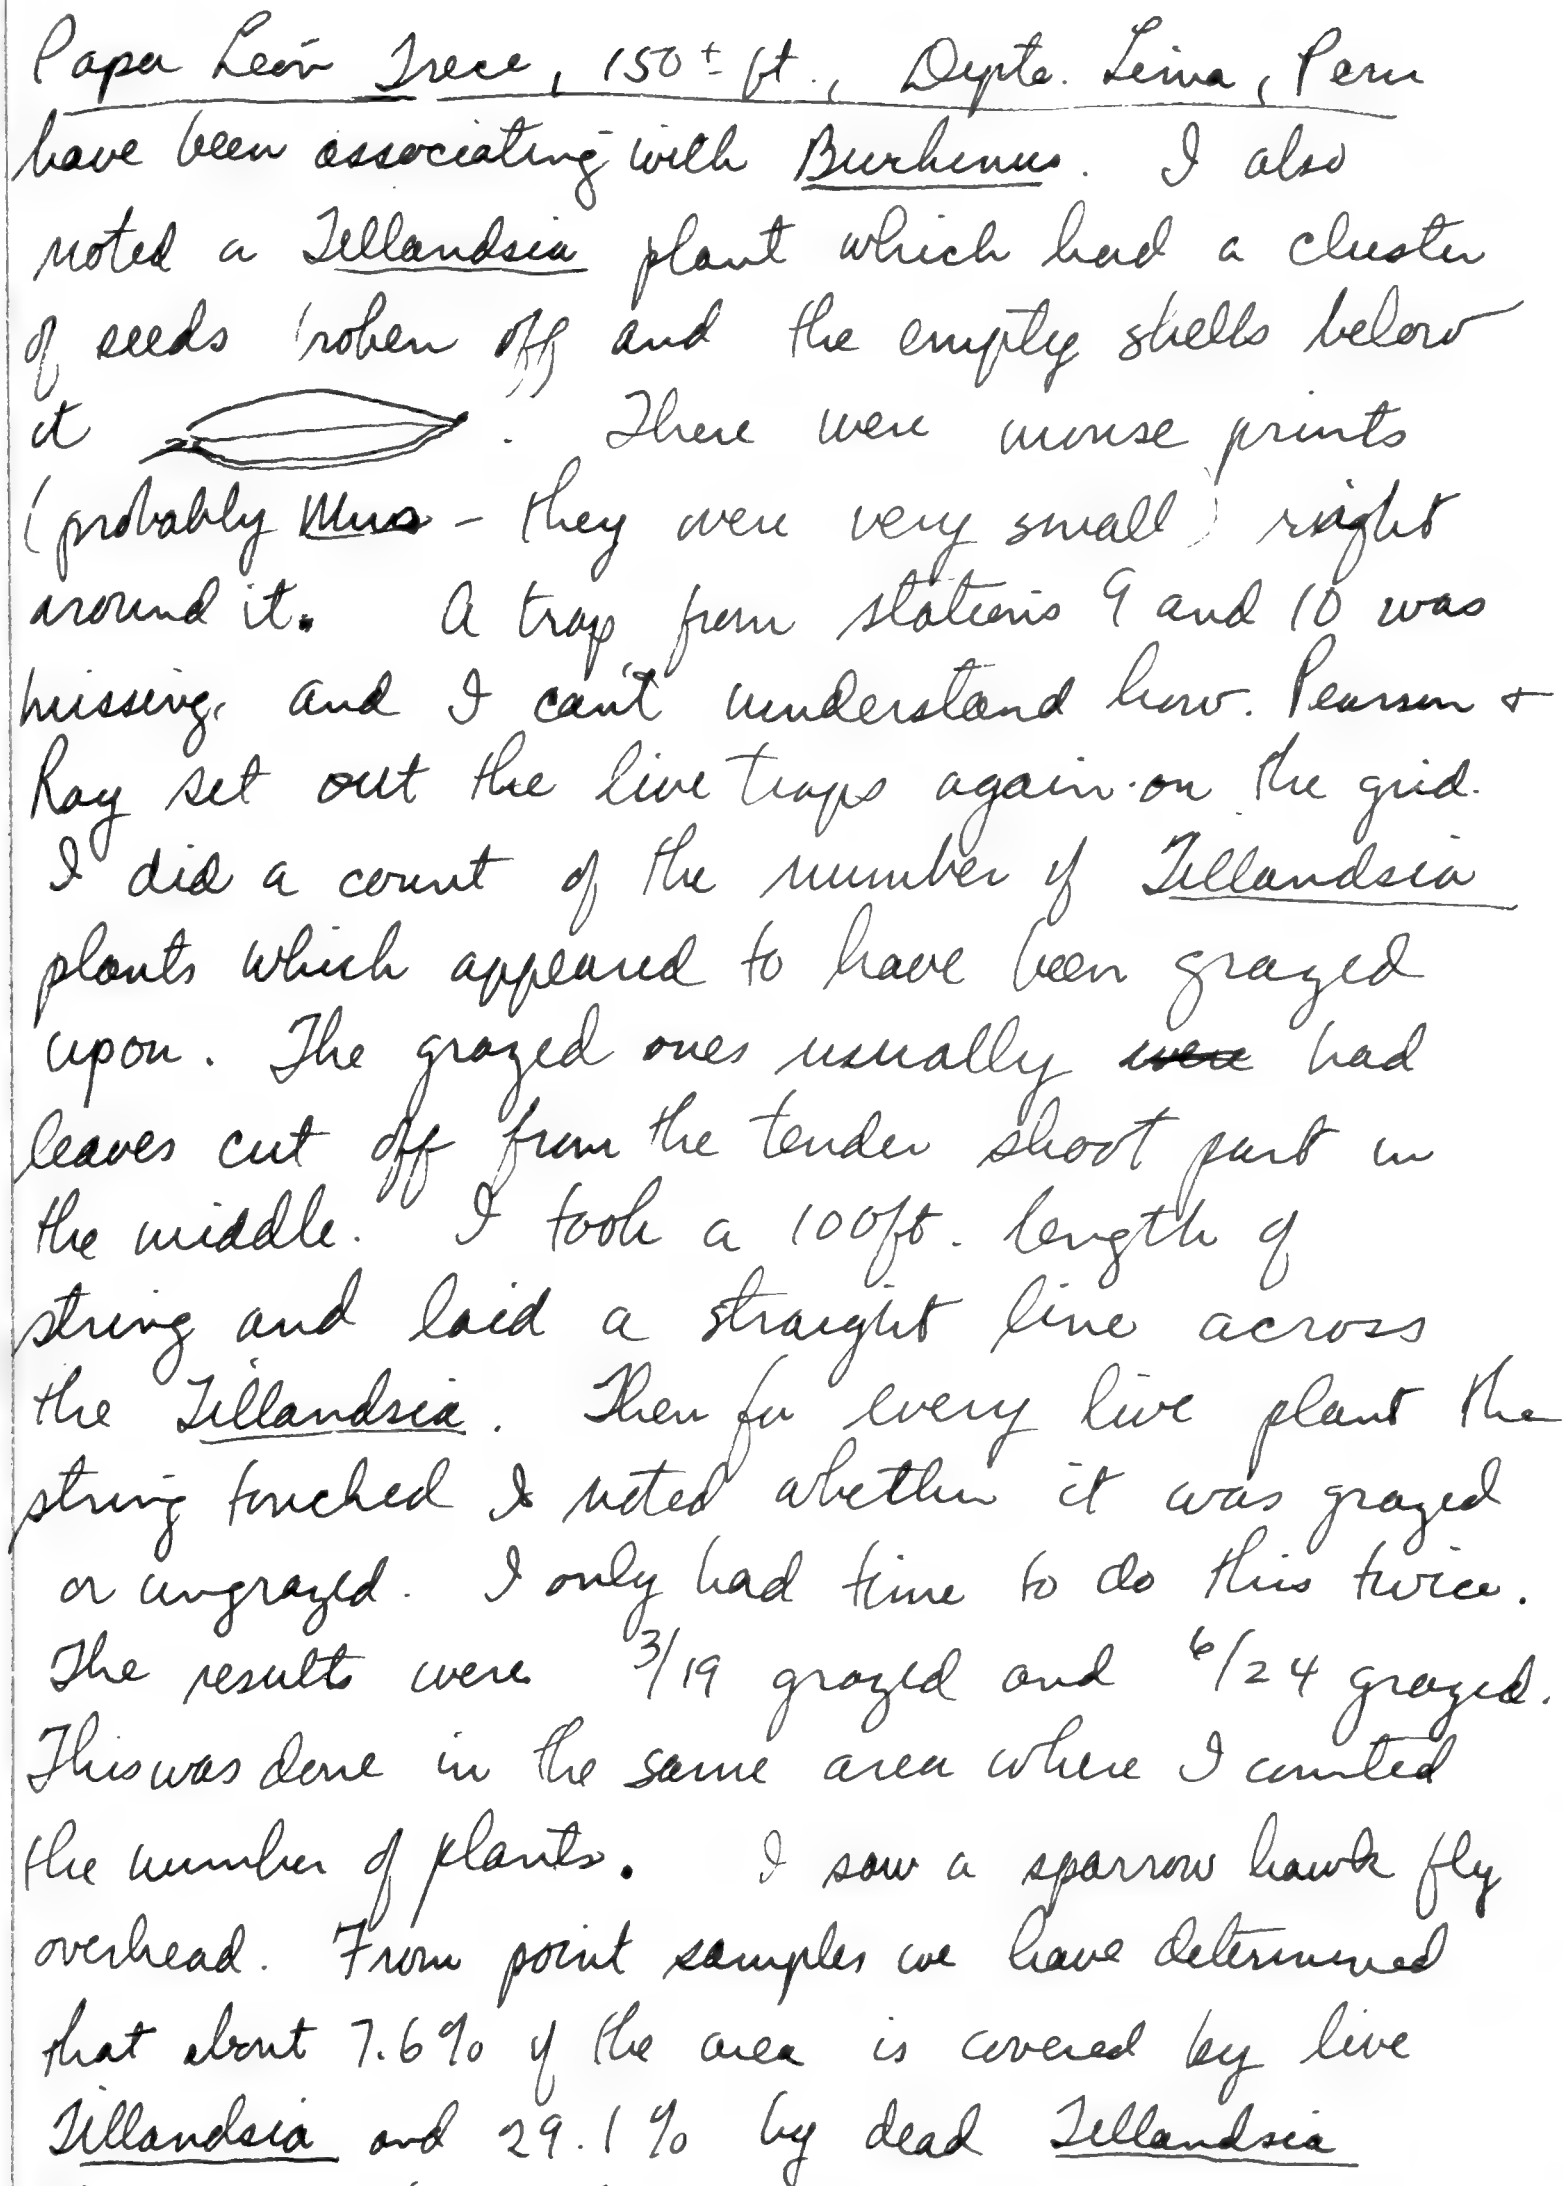 Papa León Trece, 150± ft., Depto. Lima, Peru
have been associating with Burhinus. I also
noted a Tillandsia plant which had a cluster
of seeds broken off and the empty shells below
it . There were mouse prints
(probably Mus - they were very small) right
around it. A trap from stations 9 and 10 was
missing, and I can't understand how. Pearson +
Ray set out the live traps again on the grid.
I did a count of the number of Tillandsia
plants which appeared to have been grazed
upon. The grazed ones usually were had
leaves cut off from the tender shoot part in
the middle. I took a 100ft. length of
string and laid a straight line across
the Tillandsia. Then for every live plant the
string touched I noted whether it was grazed
or ungrazed. I only had time to do this twice.
The results were 3/19 grazed and 6/24 grazed.
This was done in the same area where I counted
the number of plants. I saw a sparrow hawk fly
overhead. From point samples we have determined
that about 7.6% of the area is covered by live
Tillandsia and 29.1% by dead Tillandsia